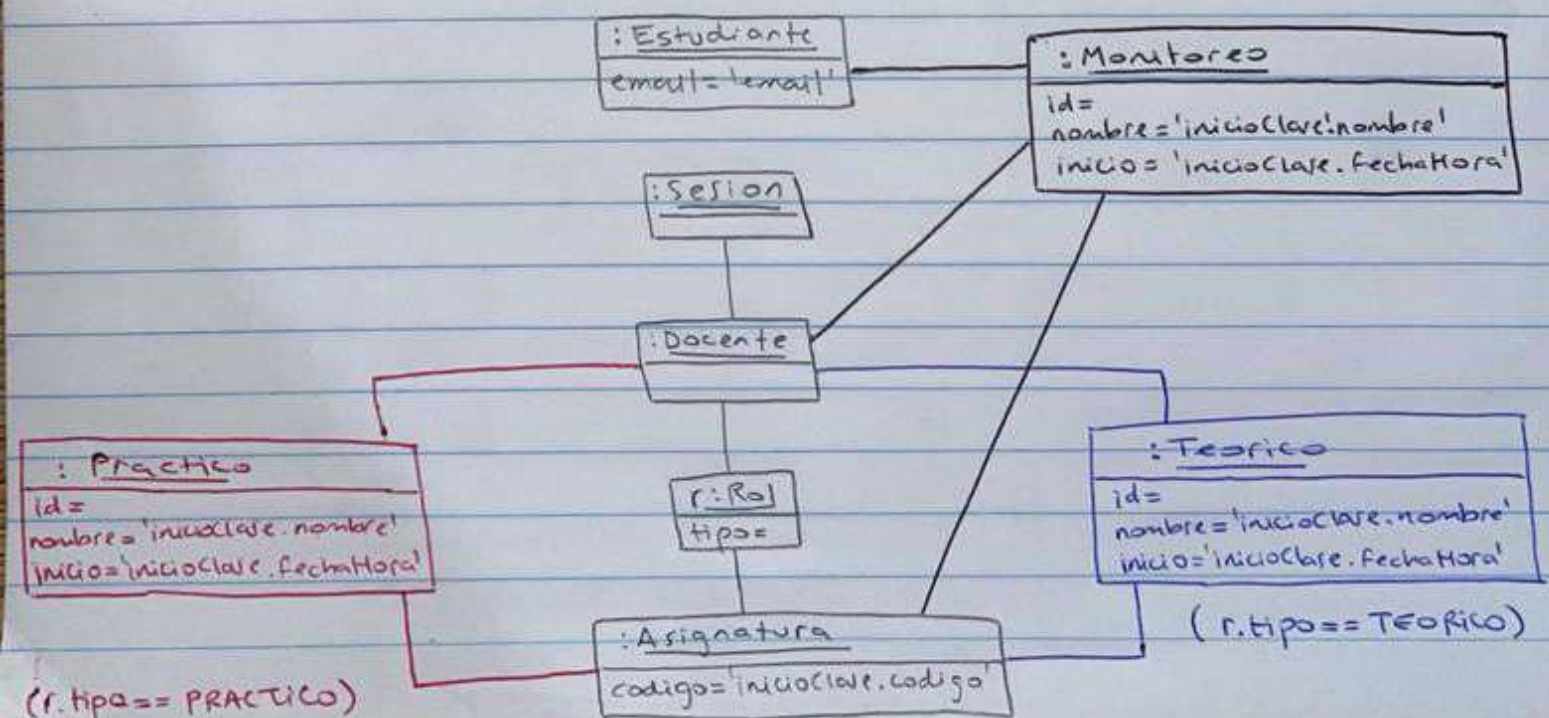 : Estudiante
email = 'email'
: Monitoreo
id =
nombre = 'inicioClase.nombre'
inicio = 'inicioClase.fechaHora'
: Sesion
: Docente
: Practico
id =
nombre = 'inicioClase.nombre'
inicio = 'inicioClase.fechaHora'
r: Rol
tipo =
: Teorico
id =
nombre = 'inicioClase.nombre'
inicio = 'inicioClase.fechaHora'
(r.tipo == TEORICO)
: Asignatura
codigo = 'inicioClase.codigo'
(r.tipo == PRACTICO)